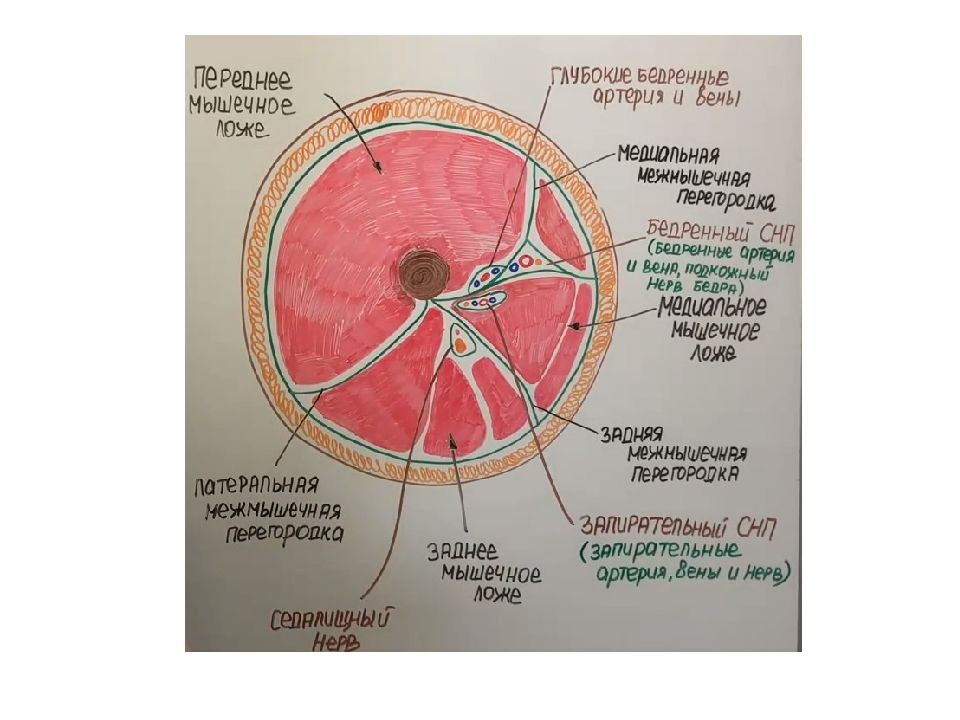 ПЕРЕДНЕЕ
МЫШЕЧНОЕ
ЛОЖЕ
ГЛУБОКИЕ БЕДРЕННЫЕ
артерия и вены
МЕДИАЛЬНАЯ
МЕЖМЫШЕЧНАЯ
ПЕРЕГОРОДКА
БЕДРЕННЫЙ СНП
(БЕДРЕННЫЕ АРТЕРИЯ
И ВЕНА, ПОДКОЖНЫЙ
НЕРВ БЕДРА)
МЕДИАЛЬНОЕ
МЫШЕЧНОЕ
ЛОЖЕ
ЗАДНЯЯ
МЕЖМЫШЕЧНАЯ
ПЕРЕГОРОДКА
ЛАТЕРАЛЬНАЯ
МЕЖМЫШЕЧНАЯ
ПЕРЕГОРОДКА
ЗАДНЕЕ
МЫШЕЧНОЕ
ЛОЖЕ
ЗАПИРАТЕЛЬНЫЙ СНП
(ЗАПИРАТЕЛЬНЫЕ
артерия, вены и нерв)
СЕДАЛИЩНЫЙ
НЕРВ